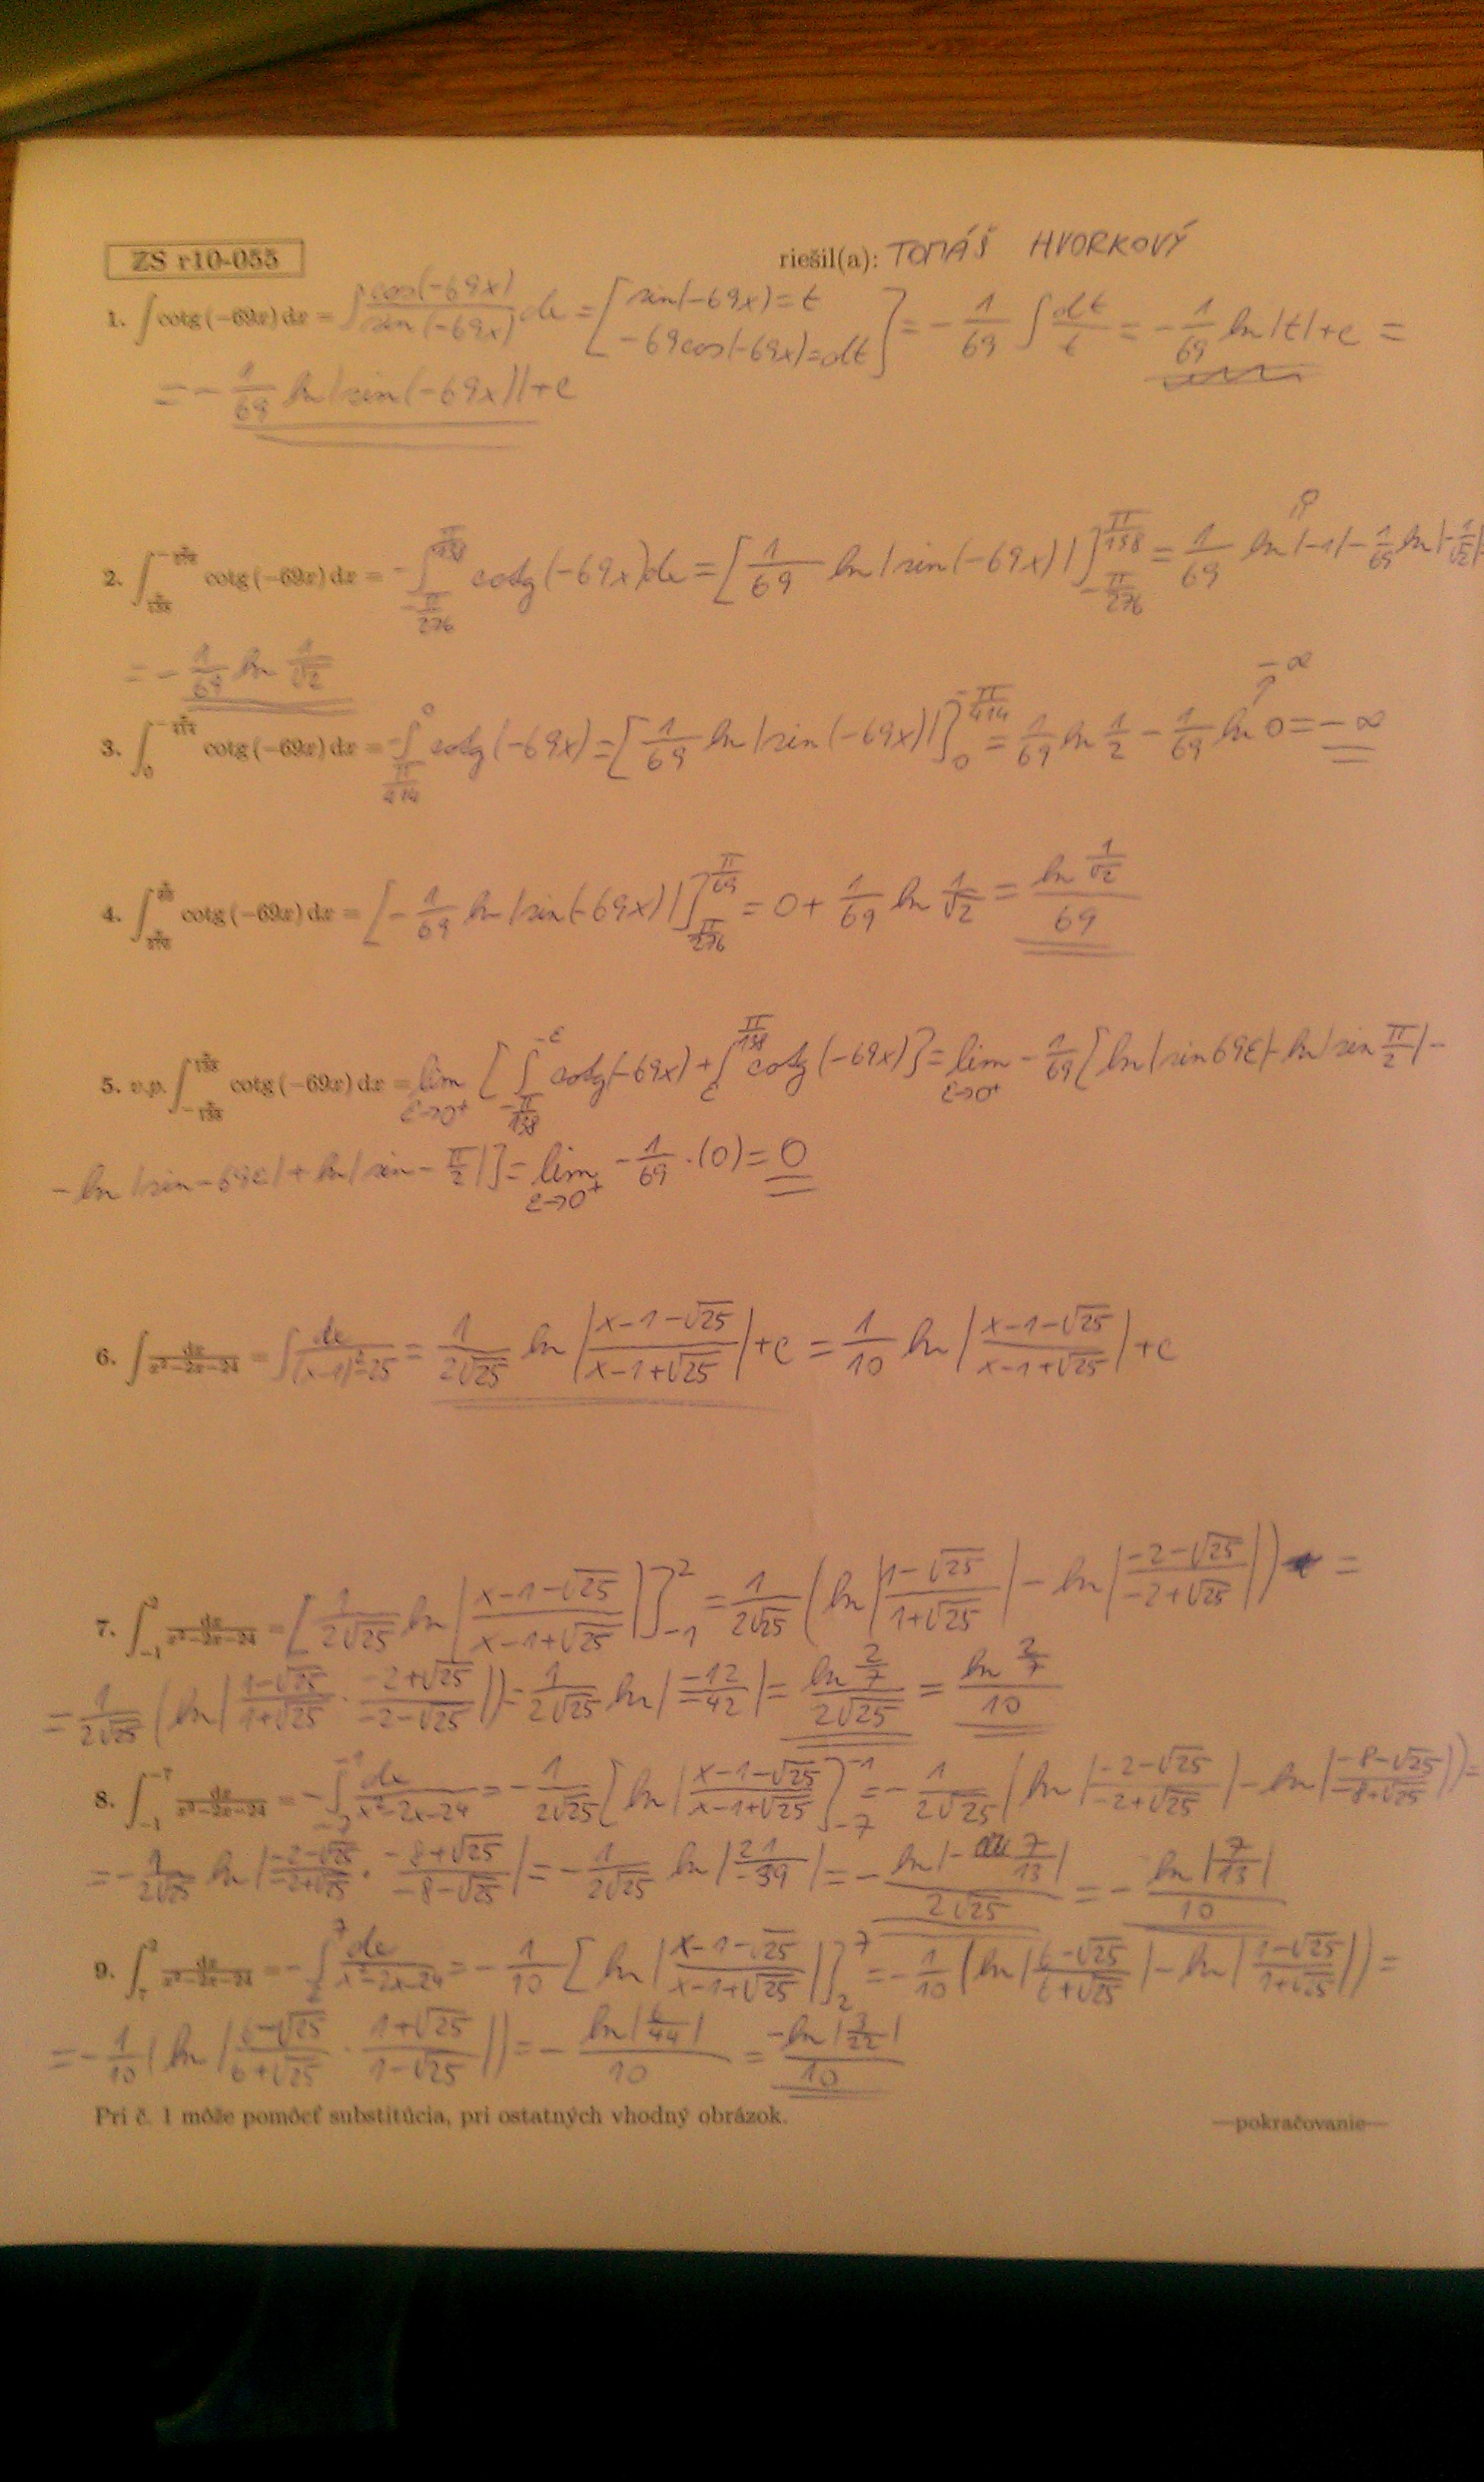 ZS r10-055
riešil(a): TOMÁŠ HVORKOVÝ
1. ∫ cotg (−69x) dx = ∫ cos(−69x)/sin(−69x) dx = [sin(−69x) = t; −69cos(−69x) = dt] = −1/69 ∫ dt/t = −1/69 ln|t| + c =
= −1/69 ln|sin(−69x)| + c
2. ∫ cotg (−69x) dx = −∫_{−π/276}^{π/138} cotg(−69x)dx = [1/69 ln|sin(−69x)|]_{−π/276}^{π/138} = 1/69 ln|−1| − 1/69 ln|−1/√2| =
= −1/69 ln 1/√2
−∞
3. ∫_0 cotg (−69x) dx = −∫^0 cotg(−69x) = [1/69 ln|sin(−69x)|]_0^{−π/414} = 1/69 ln 1/2 − 1/69 ln 0 = −∞
4. ∫ cotg (−69x) dx = [−1/69 ln|sin(−69x)|]_{π/276}^{π/69} = 0 + 1/69 ln 1/√2 = ln 1/√2 / 69
5. v.p. ∫ cotg (−69x) dx = lim_{ε→0⁺} [∫_{−π/138}^{−ε} cotg(−69x) + ∫_ε^{π/138} cotg(−69x)] = lim_{ε→0⁺} −1/69 [ln|sin69ε| − ln|sin π/2| −
− ln|sin−69ε| + ln|sin−π/2|] = lim_{ε→0⁺} −1/69 · (0) = 0
6. ∫ dx/(x²−2x−24) = ∫ dx/((x−1)²−25) = 1/(2√25) ln|(x−1−√25)/(x−1+√25)| + c = 1/10 ln|(x−1−√25)/(x−1+√25)| + c
7. ∫_{−1}^{2} dx/(x²−2x−24) = [1/(2√25) ln|(x−1−√25)/(x−1+√25)|]_{−1}^{2} = 1/(2√25) (ln|(1−√25)/(1+√25)| − ln|(−2−√25)/(−2+√25)|) =
= 1/(2√25) (ln|(1−√25)/(1+√25) · (−2+√25)/(−2−√25)|) = 1/(2√25) ln|−12/−42| = ln 2/7 / (2√25) = ln 2/7 / 10
8. ∫_{−1}^{−7} dx/(x²−2x−24) = −∫_{−7}^{−1} dx/(x²−2x−24) = −1/(2√25) [ln|(x−1−√25)/(x−1+√25)|]_{−7}^{−1} = −1/(2√25) (ln|(−2−√25)/(−2+√25)| − ln|(−8−√25)/(−8+√25)|) =
= −1/(2√25) ln|(−2−√25)/(−2+√25) · (−8+√25)/(−8−√25)| = −1/(2√25) ln|21/−39| = −ln|−7/13| / (2√25) = −ln|7/13| / 10
9. ∫_7^2 dx/(x²−2x−24) = −∫_2^7 dx/(x²−2x−24) = −1/10 [ln|(x−1−√25)/(x−1+√25)|]_2^7 = −1/10 (ln|(6−√25)/(6+√25)| − ln|(1−√25)/(1+√25)|) =
= −1/10 (ln|(6−√25)/(6+√25) · (1+√25)/(1−√25)|) = −ln|6/44| / 10 = −ln|3/22| / 10
Pri č. 1 môže pomôcť substitúcia, pri ostatných vhodný obrázok.
—pokračovanie—